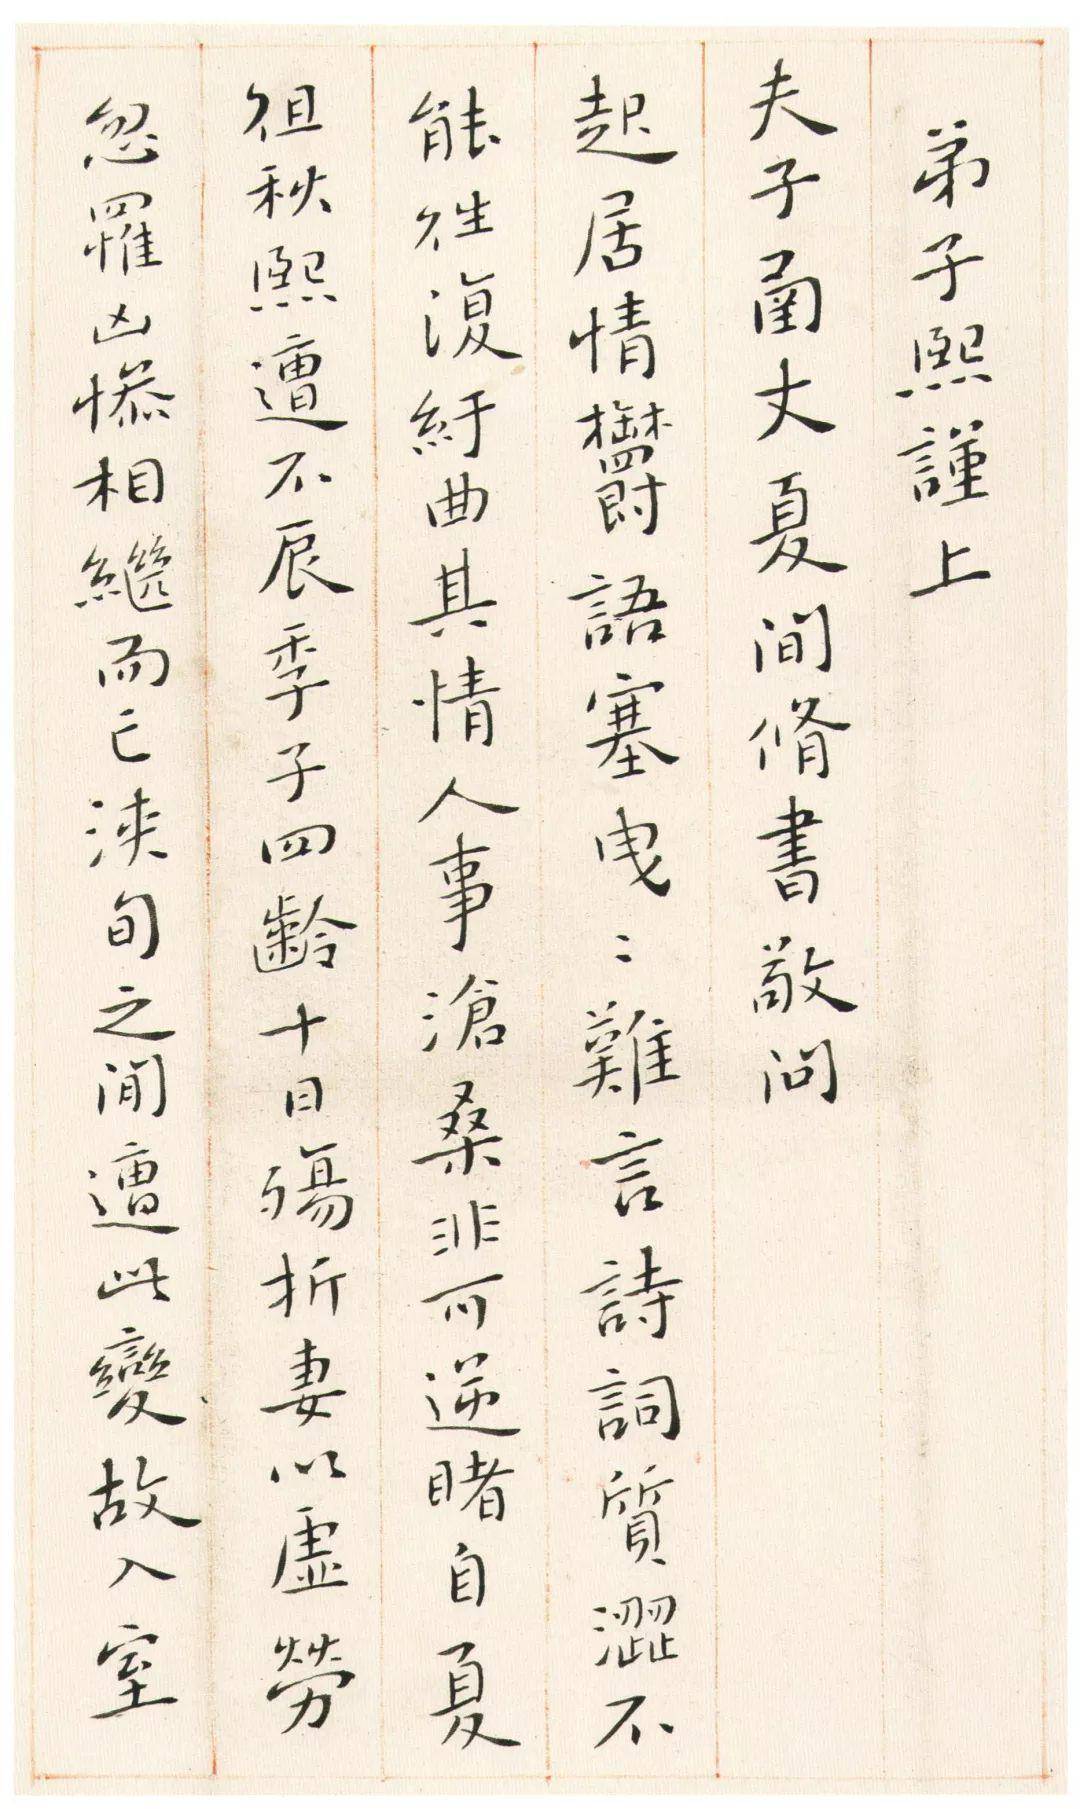 弟子熙謹上
夫子函丈夏間脩書敬問
起居情欝語塞曳〻難言詩詞質澀不
能往復紆曲其情人事滄桑非可逆睹自夏
徂秋熙遭不辰季子四齡十日殤折妻以虛勞
忽罹凶慘相繼而亡浹旬之間遭此變故入室